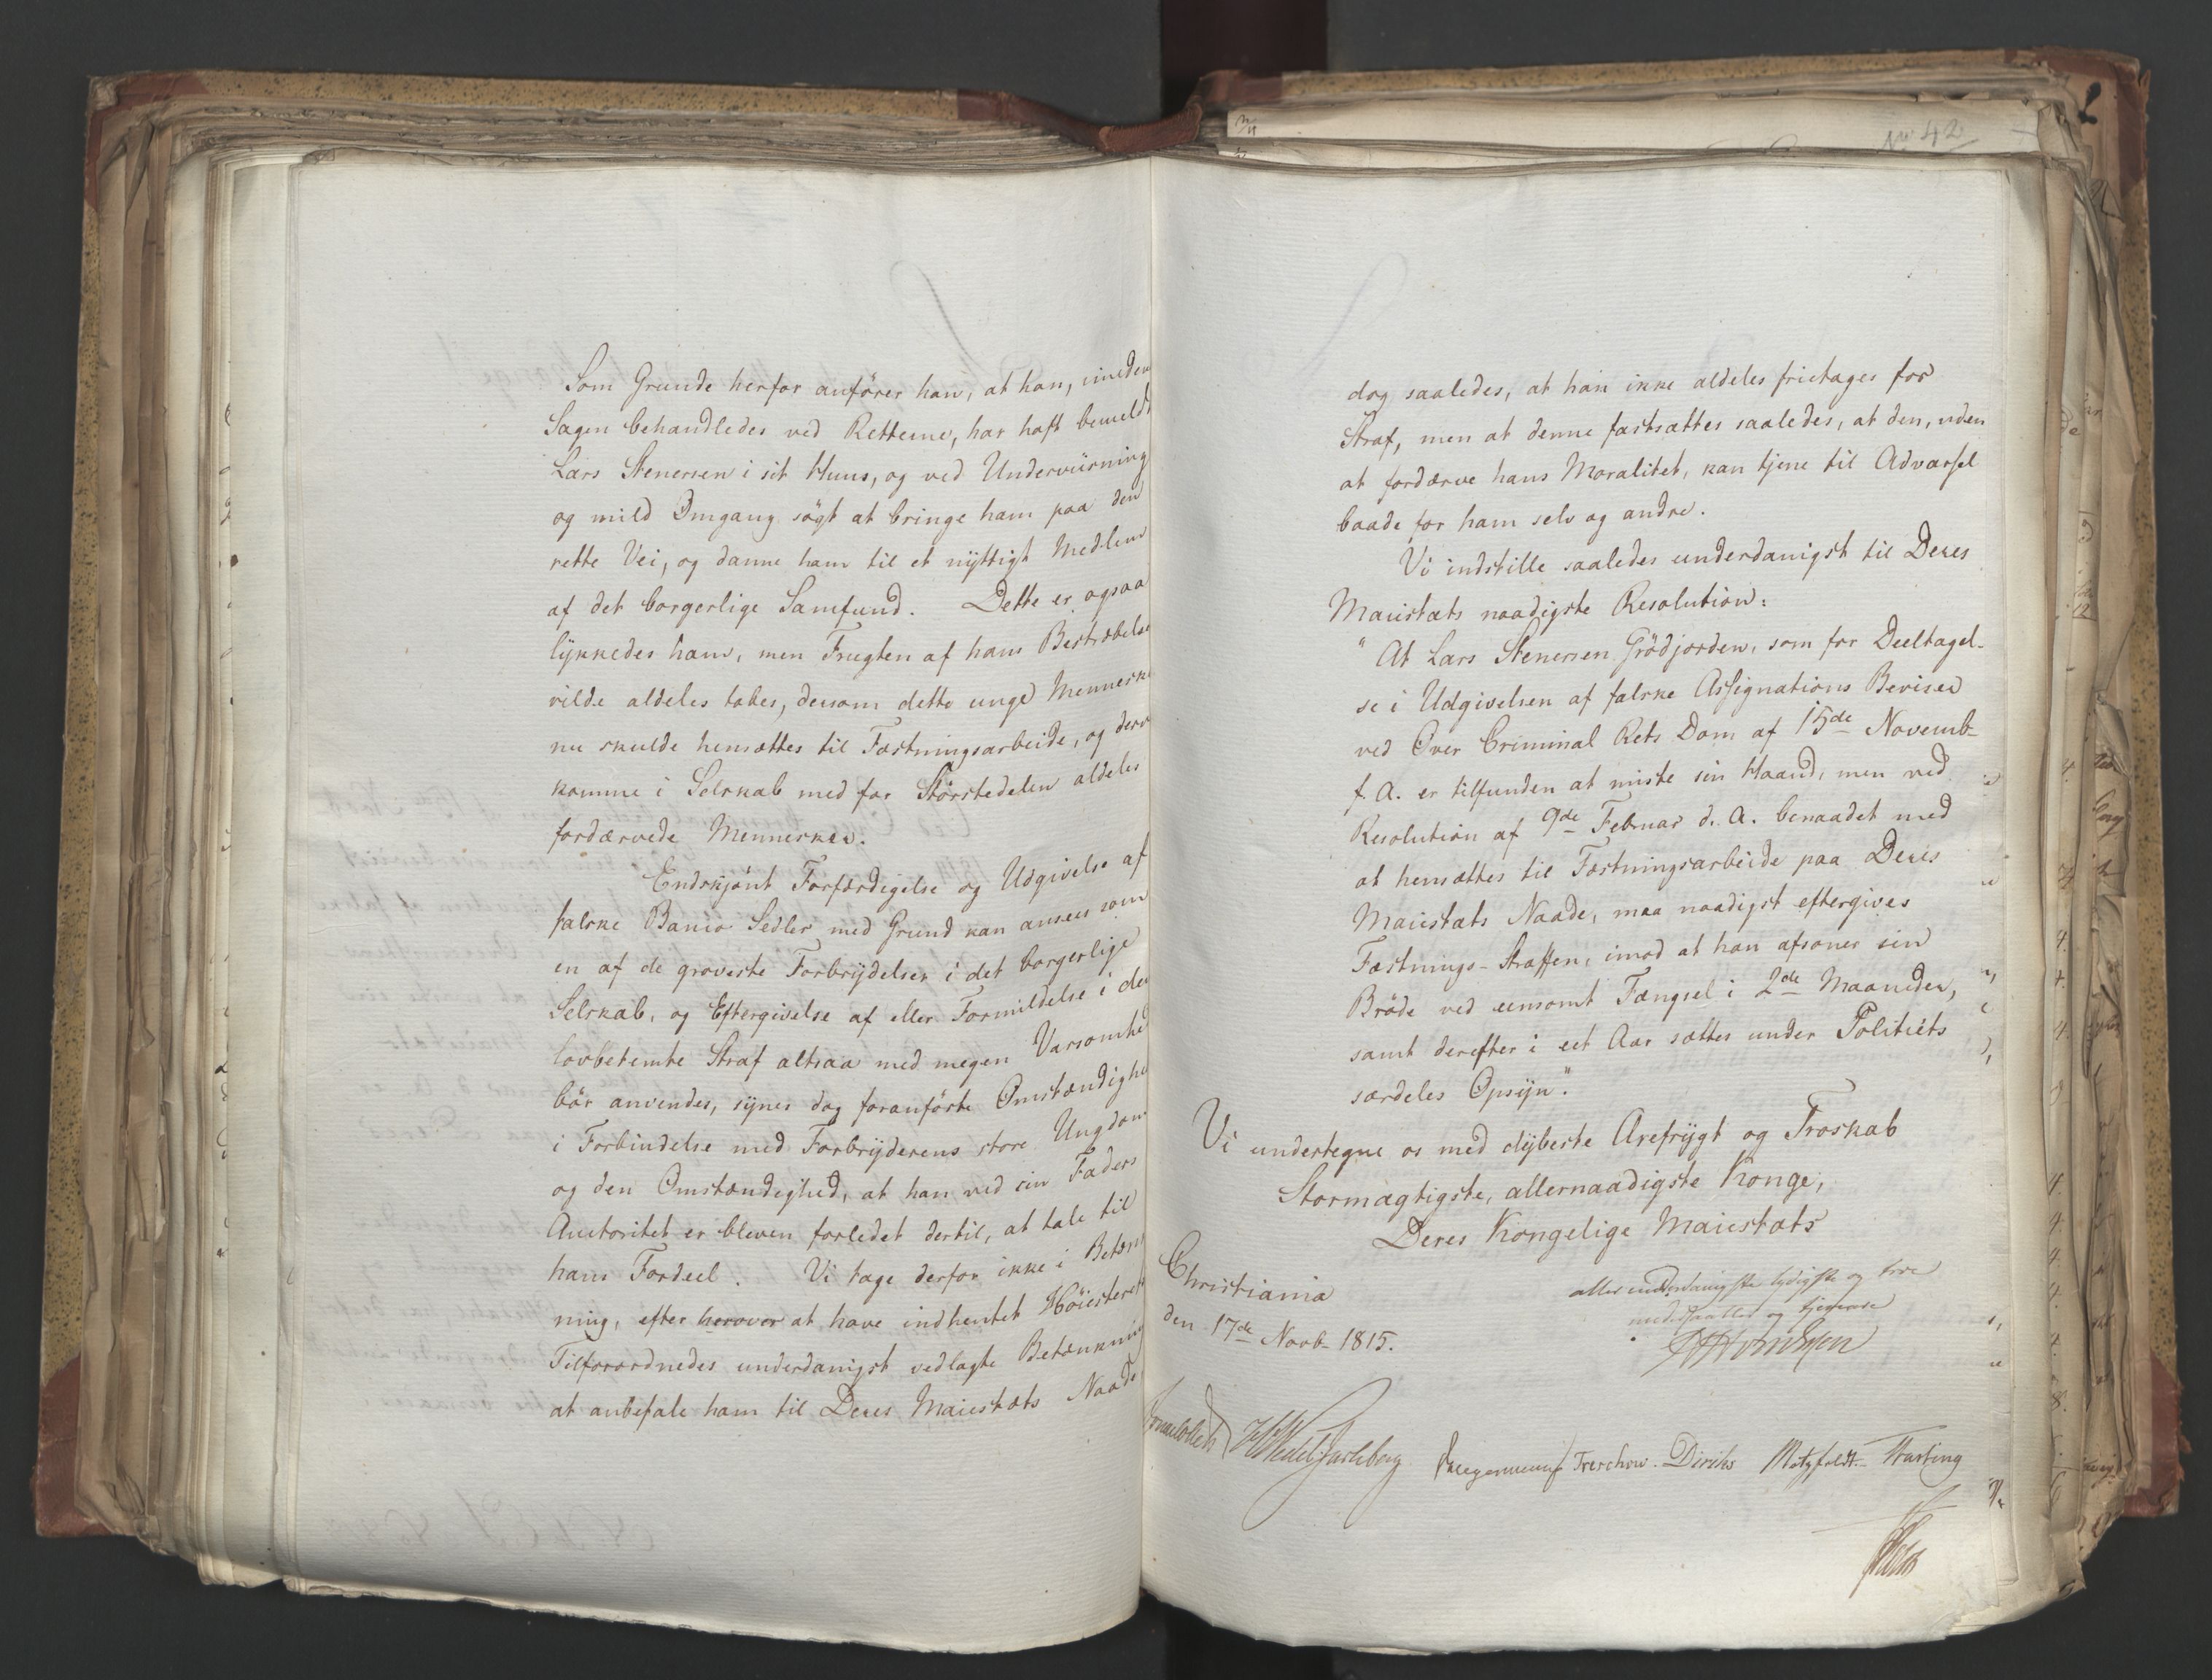 Som Grunde herfor anfører han, at han, imeden
Sagen behandledes ved Retterne, har haft bemeldte
Lars Stenersen i sit Huus, og ved Underviisning
og mild Omgang søgt at bringe ham paa den
rette Vei, og danne ham til et nÿttigt Medlem
af det borgerlige Samfund. Dette er ogsaa
lÿkkedes ham, men Frugten af hans Bestræbelse
vilde aldeles tabes, dersom dette unge Menneske
nu skulde hensættes til Fæstningsarbeide, og derv
komme i Selskab med for Størstedelen aldeles
fordærvede Mennesker.
Endskjønt Forfærdigelse og Udgivelse af
falske Banco Sedler med Grund kan ansees som
en af de groveste Forbrÿdelser i det borgerlige
Selskab, og Eftergivelse af eller Formildelse i den
lovbestemte Straf altsaa med megen Varsomhed
bør anvendes, sÿnes dog foranførte Omstændighed
i Forbindelse med Forbrÿderens store Ungdom
og den Omstændighed, at han ved sin Faders
Auctoritet er bleven forledet dertil, at tale til
hans Fordeel. Vi tage derfor ikke i Betænk
ning, efter herover at have indhentet Høiesterets
Tilforordnedes underdanigst vedlagte Betænkning
at anbefale ham til Deres Maiestæts Naade
No 42
dog saaledes, at han ikke aldeles frietages for
Straf, men at denne fastsættes saaledes, at den, uden
at fordærve hans Moralitet, kan tjene til Advarsel
baade for ham selv og andre.
Vi indstille saaledes underdanigst til Deres
Maiestæts naadigste Resolution:
"At Lars Stenersen Grödjorden, som for Deeltagel-
se i Udgivelsen af falske Assignations Beviser
ved Over Criminal Rets Dom af 15de Novemb-
f. A. er tilfunden at miste sin Haand, men ved
Resolution af 9de Februar d. A. benaadet med
at hensættes til Fæstningsarbeide paa Deres
Maiestæts Naade, maa naadigst eftergives
Fæstnings-Straffen, imod at han afsoner sin
Bröde ved eensomt Fængsel i 2de Maaneder,
samt derefter i eet Aar sættes under Politiets
særdeles Opsÿn".
Vi undertegne os med dÿbeste Ærefrÿgt og Troskab
Stormægtigste, allernaadigste Konge,
Deres Kongelige Maiestæts
Christiania
den 17de Novb- 1815.
allerunderdanigste lydigste og troe
undersaatter og tjenere
Jonas Collett HWedel Jarlsberg Treschow. Diriks Motzfeldt